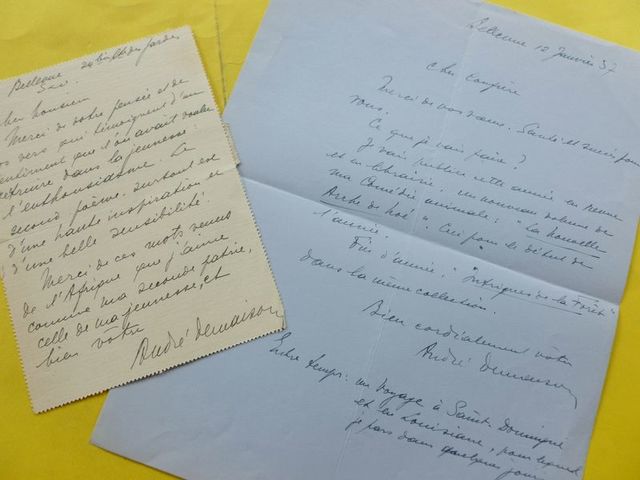 Bellevue 24 bis
S.-et-O.
Cher Monsieur
Merci de votre pensée et de
vos vers qui témoignent d'un
sentiment que l'on avait voulu
détruire dans la jeunesse:
l'enthousiasme. Le
second poème surtout est
d'une haute inspiration et
d'une belle sensibilité!
Merci de ces mots venus
de l'Afrique que j'aime
comme ma seconde patrie,
celle de ma jeunesse, et
bien vôtre
André Demaison
Bellevue 12 Janvier 37
Cher Confrère
Merci de vos vœux. Santé et succès pour
vous.
Ce que je vais faire?
Je vais publier cette année en
et en librairie un nouveau volume de
ma Comédie animale: "La Nouvelle
Arche de Noé". Ceci pour le début de
l'année.
Fin d'année "Intrigues de la Forêt"
dans la même collection.
Bien cordialement vôtre
André Demaison
Entre temps: un voyage à Saint Domingue
et en Louisiane, pour lequel
je pars dans quelques jours